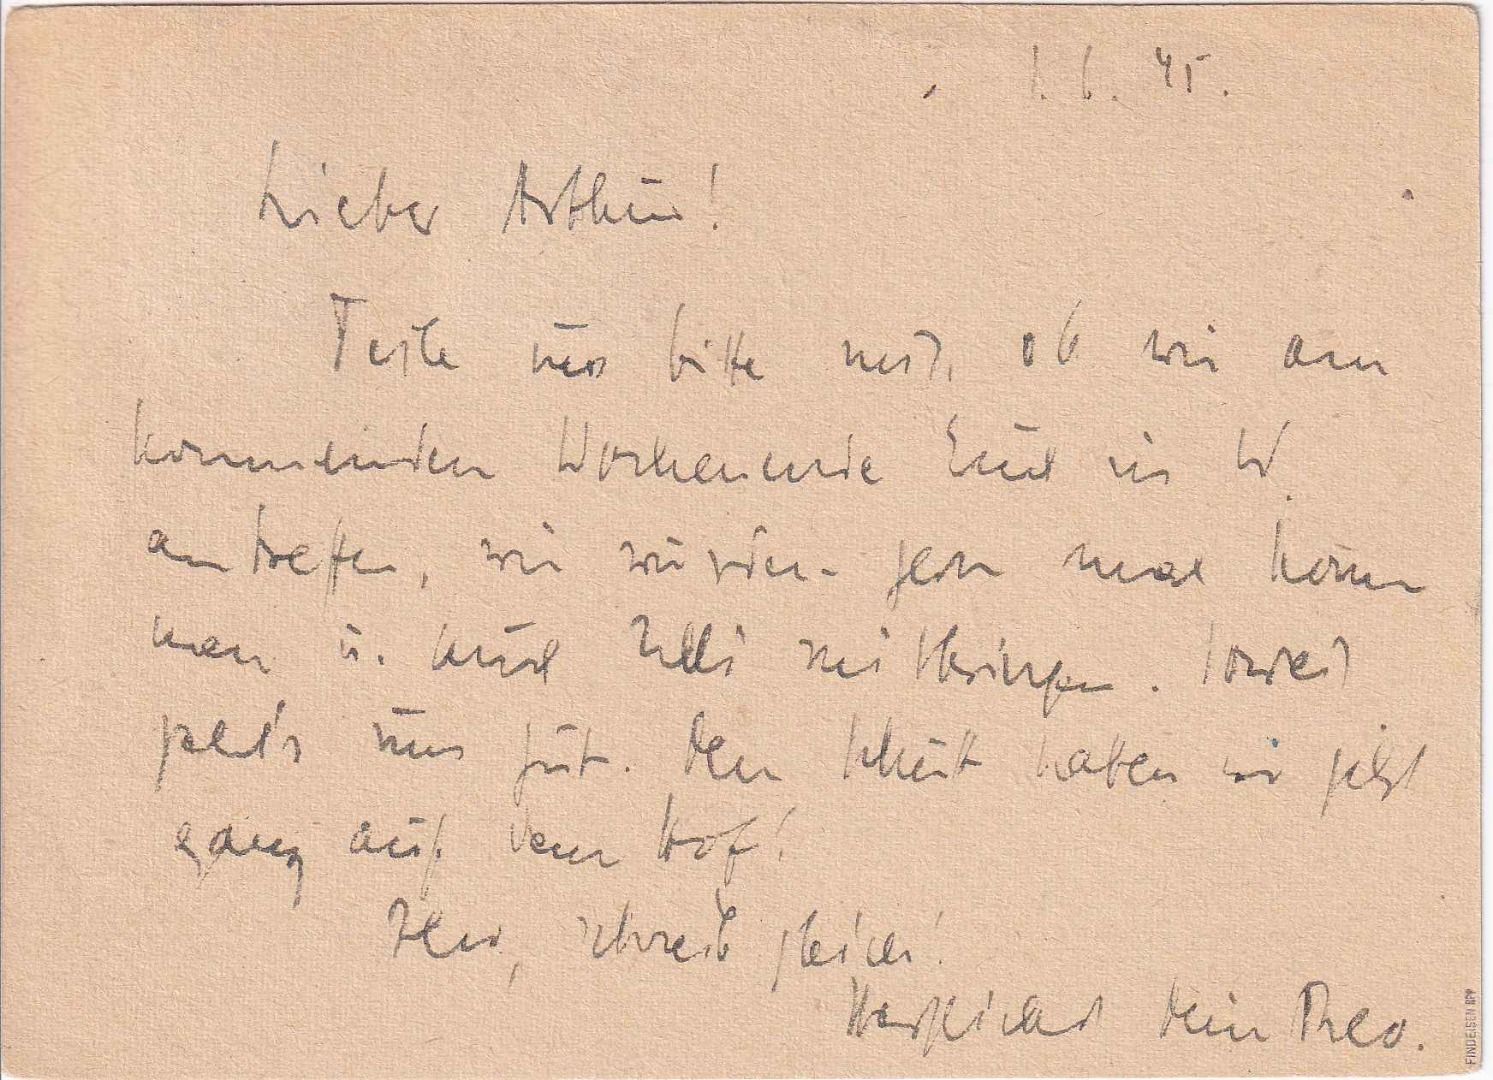 1. 6. 45.
Lieber Arthur!
Teile uns bitte mit, ob wir am
kommenden Wochenende Euch in W.
antreffen, wir würden gern mal kom
men u. auch mitbringen. Soweit
geht's uns gut. Den haben wir jetzt
ganz auf dem Hof!
Also, schreib gleich!
Herzlichst Dein Theo.
FINDEISEN BPP